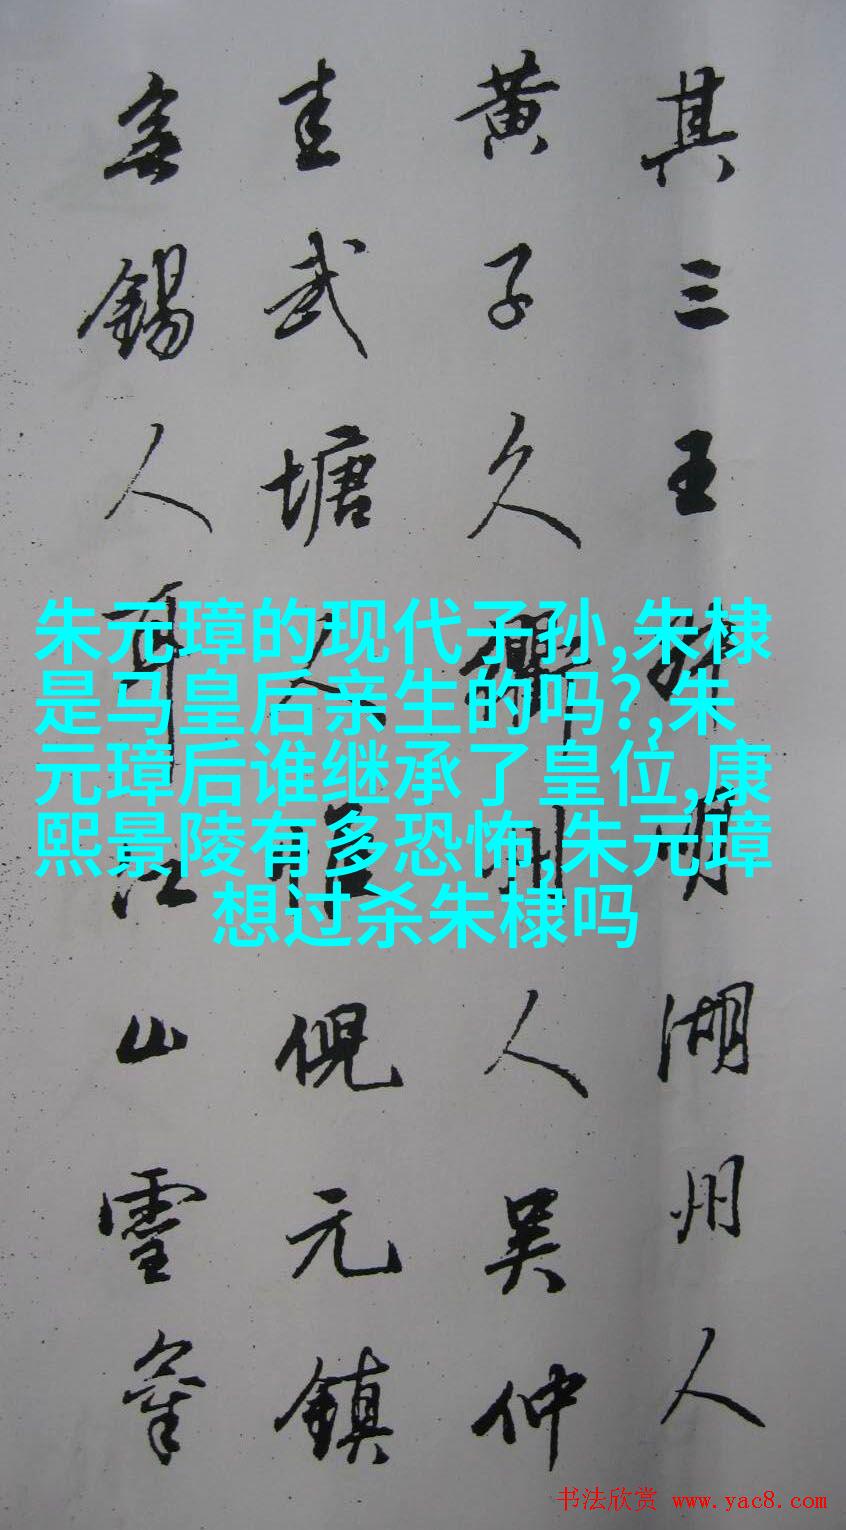 其三王叔明湖州人
黄子久衢州人吴仲
圭武塘人惟倪元鎮
無錫人耳江山靈氣
朱元璋的现代子孙,朱棣
是马皇后亲生的吗?,朱
元璋后谁继承了皇位,康
熙景陵有多恐怖,朱元璋
想过杀朱棣吗
书法欣赏 www.yac8.com